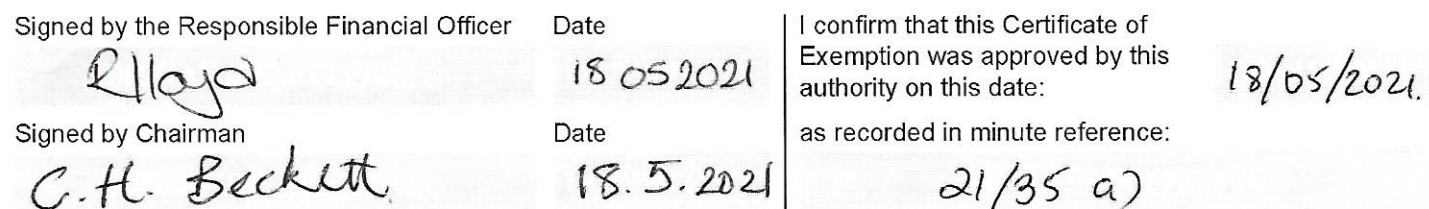 Signed by the Responsible Financial Officer Date
RLloyd 18 05 2021
Signed by Chairman Date
C. H. Beckett. 18.5.2021
I confirm that this Certificate of
Exemption was approved by this
authority on this date: 18/05/2021.
as recorded in minute reference:
21/35 a)